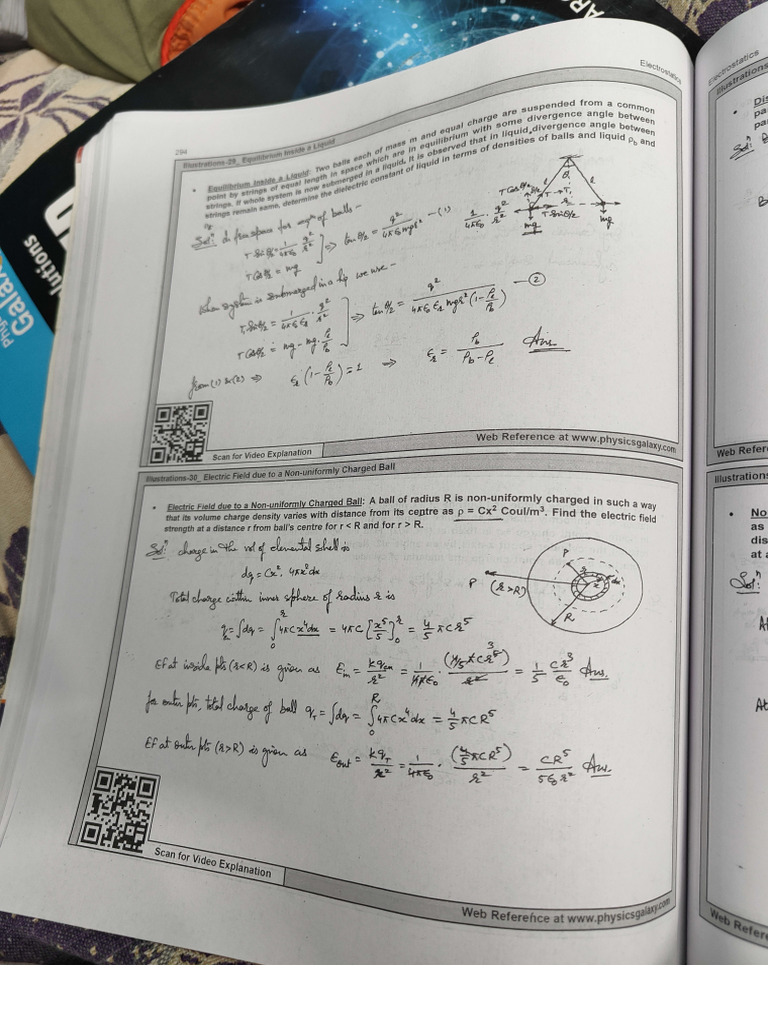 Electrostatics
294
Illustrations-29_ Equilibrium Inside a Liquid
• Equilibrium Inside a Liquid: Two balls each of mass m and equal charge are suspended from a common
point by strings of equal length in space which are in equilibrium with some divergence angle between
strings. If whole system is now submerged in a liquid. It is observed that in liquid, divergence angle between
strings remain same, determine the dielectric constant of liquid in terms of densities of balls and liquid ρb and
Solⁿ: In free space for eqm of balls -
T sin θ/2 = 1/4π∈0 · q²/r²
T cos θ/2 = mg
⇒ tan θ/2 = q²/4π∈0 mgr² — (1)
θ
l
l
T cos θ/2
T
T sin θ/2
1/4π∈0 · q²/r²
r
mg
mg
When system is submerged in a liq we use -
T sin θ/2 = 1/4π∈0∈r · q²/r²
T cos θ/2 = mg - mg · ρl/ρb
⇒ tan θ/2 = q²/4π∈0∈r mgr²(1 - ρl/ρb) — (2)
from (1) & (2) ⇒ ∈r(1 - ρl/ρb) = 1 ⇒ ∈r = ρb/ρb - ρl Ans.
Scan for Video Explanation
Web Reference at www.physicsgalaxy.com
Illustrations-30_ Electric Field due to a Non-uniformly Charged Ball
• Electric Field due to a Non-uniformly Charged Ball: A ball of radius R is non-uniformly charged in such a way
that its volume charge density varies with distance from its centre as ρ = Cx² Coul/m³. Find the electric field
strength at a distance r from ball's centre for r < R and for r > R.
Solⁿ: charge in the vol of elemental shell is
dq = Cx² · 4πx²dx
Total charge within inner sphere of radius r is
q = ∫dq = ∫₀ʳ 4πCx⁴dx = 4πC [x⁵/5]₀ʳ = 4/5 πCr⁵
P
P
(r>R)
r
x
dx
R
EF at inside pts (r<R) is given as Ein = kqen/r² = 1/4π∈0 · (4/5 πCr⁵)/r² = 1/5 Cr³/∈0 Ans.
3
for outer pts, total charge of ball qT = ∫dq = ∫₀ᴿ 4πCx⁴dx = 4/5 πCR⁵
EF at outer pts (r>R) is given as Eout = kqT/r² = 1/4π∈0 · (4/5 πCR⁵)/r² = CR⁵/5∈0r² Ans.
Scan for Video Explanation
Web Reference at www.physicsgalaxy.com
Electrostatics
Illustrations
• Dis
pa
pa
Solⁿ:
Web Refer
Illustrations
• No
as
dis
at a
Solⁿ:
At
At
Web Refere
olutions
Phy
Galax